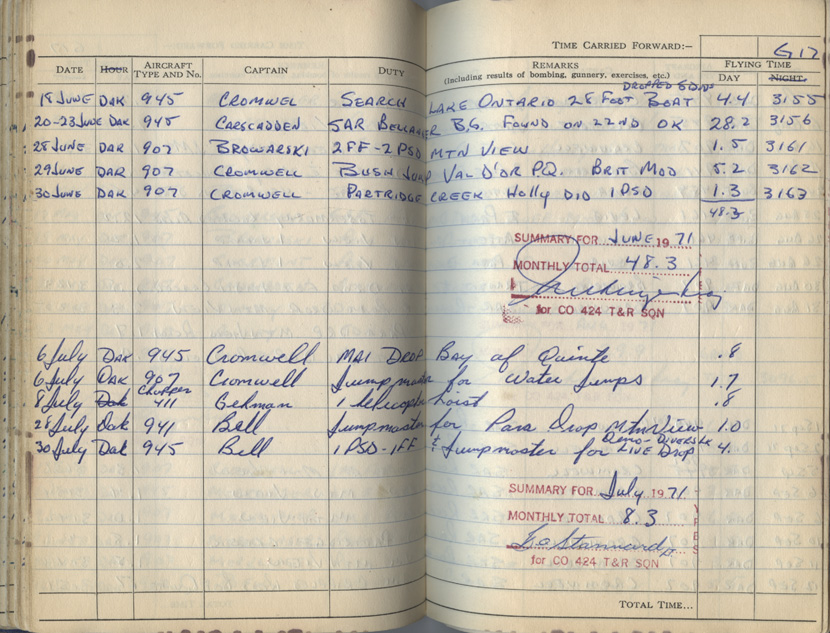 TIME CARRIED FORWARD:— 617
DATE HOUR AIRCRAFT TYPE AND No. CAPTAIN DUTY REMARKS (Including results of bombing, gunnery, exercises, etc.) FLYING TIME DAY NIGHT.
DROPPED
18 JUNE DAK 945 CROMWEL SEARCH LAKE ONTARIO 28 FOOT BOAT 4.4 3155
20-23 JUNE DAK 945 CARSCADDEN SAR B.G. FOUND ON 22ND OK 28.2 3156
28 JUNE DAK 907 BROWARSKI 2FF-2 PSD MTN VIEW 1.5 3161
29 JUNE DAK 907 CROMWELL BUSH JUMP VAL D'OR P.Q. BRIT MOD 5.2 3162
30 JUNE DAK 907 CROMWELL PARTRIDGE CREEK Holly DID 1PSD 1.3 3163
48.3
SUMMARY FOR JUNE 1971
MONTHLY TOTAL 48.3
for CO 424 T&R SQN
6 July Dak 945 Cromwell MA1 DROP Bay of Quinte .8
6 July Dak 907 Cromwell Jumpmaster for Water Jumps 1.7
8 July Dak Chopper 411 Gehman 1 Helicopter hoist .8
28 July Dak 941 Bell Jumpmaster for Para Drop Mtn View 1.0
30 July Dak 945 Bell 1PSD-1FF & Jumpmaster for LIVE DROP 4.
SUMMARY FOR July 1971
MONTHLY TOTAL 8.3
for CO 424 T&R SQN
TOTAL TIME...